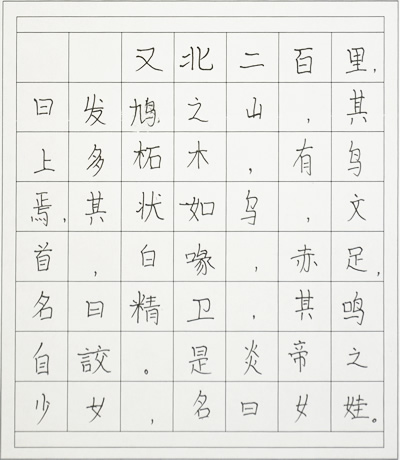 又北二百里，
曰发鸠之山，其
上多柘木，有鸟
焉，其状如乌，文
首，白喙，赤足，
名曰精卫，其鸣
自詨。是炎帝之
少女，名曰女娃。